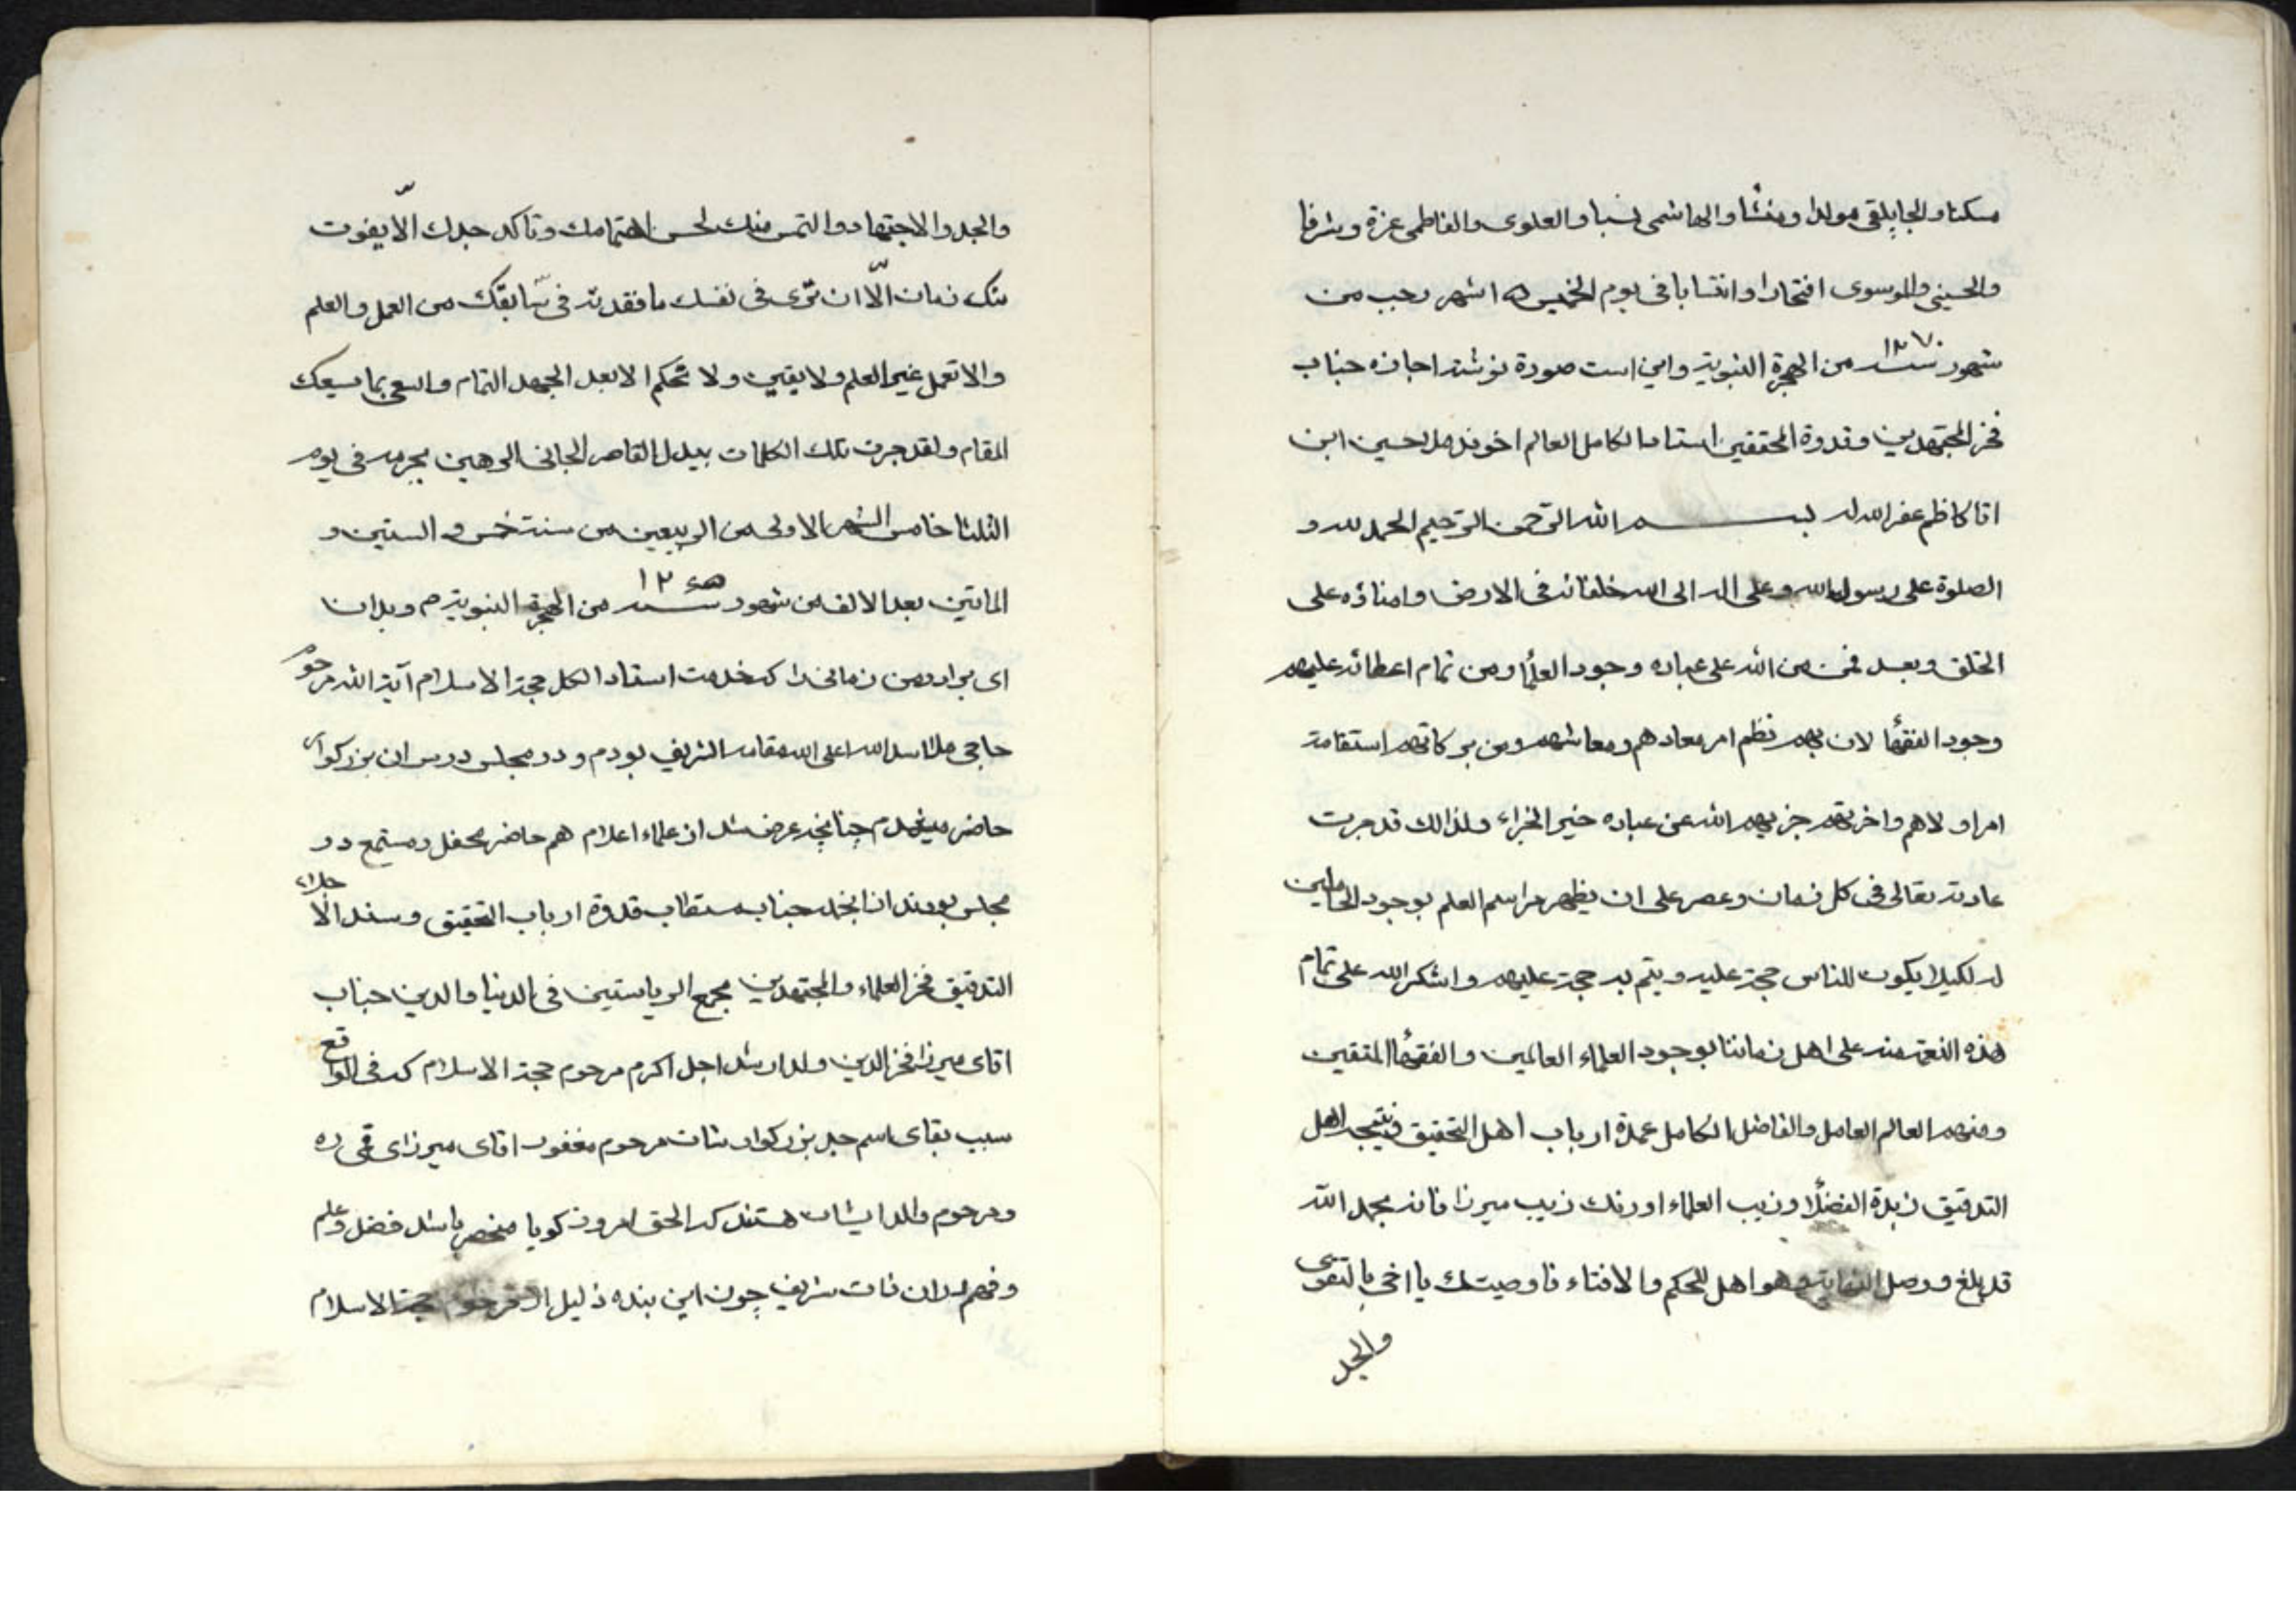 مسکنا والجاپلقی مولدا ومنشأ والهاشمی نسبا والعلوی والفاطمی عزة وشرفا
والحسینی والموسوی افتخارا وانتسابا فی یوم الخمیس ۱۵ شهر رجب من
شهور سنه ۱۲۷۰ من الهجرة النبویة واین است صورة نوشته اجازه جناب
فخر المجتهدین وقدوة المحققین استادنا الکامل العالم اخوند ملا حسین ابن
اقا کاظم غفر الله له بسم الله الرحمن الرحیم الحمد لله و
الصلوة علی رسول الله وعلی اله الی الله خلفائه فی الارض وامناؤه علی
الخلق وبعد فمن من الله علی عباده وجود العلما ومن تمام اعطائه علیهم
وجود الفقها لان بهم نظم امر معادهم ومعاشهم ومن برکاتهم استقامة
امر اولاهم واخریهم جزیهم الله عن عباده خیر الجزاء ولذالک قد جرت
عادته تعالی فی کل زمان وعصر علی ان یظهر مراسم العلم بوجود الحاملین
له لکیلا یکون للناس حجة علیه ویتم به حجة علیهم واشکر الله علی تمام
هذه النعمة منه علی اهل زماننا بوجود العلماء العالمین والفقها المتقین
ومنهم العالم العامل والفاضل الکامل عمدة ارباب اهل التحقیق ونتیجه اهل
التدقیق زبدة الفضلا وزیب العلماء اورنک زیب میرزا فانه بحمد الله
قد بلغ ووصل وهو اهل للحکم والافتاء فاوصیتک یا اخی بالتقوی
والجد
والجد والاجتهاد والتمس منک لحسن اهتمامک وتاکد جدک الّا یفوت
منک زمان الّا ان تری فی نفسک ما فقدته فی سابقک من العمل والعلم
والا تعمل غیر العلم ولا یقین ولا تحکم الا بعد الجهد التمام واسع بما یسعک
المقام ولقد جرت تلک الکلمات بید القاصر الجانی الرهین بجرمه فی یوم
الثلثا خامس الشهر الاولی من الربیعین من سنة خمس و الستین و
الماتین بعد الالف من شهور سنه ۱۲۶۵ من الهجرة النبویة م وبدان
ای برادر من زمانی را که خدمت استاد الکل حجة الاسلام آیة الله مرحوم
حاجی ملا اسد الله اعلی الله مقامه الشریف بودم و در مجلس درس ان بزرکوار
حاضر میشدم چنانچه عرض شد از علماء اعلام هم حاضر محفل و مستمع در
مجلس بودند از انجمله جناب مستطاب قدوة ارباب التحقیق و سند الاجلاء
التدقیق فخر العلماء والمجتهدین مجمع الریاستین فی الدنیا والدین جناب
اقای میرزا فخر الدین ولد ارشد اجل اکرم مرحوم حجة الاسلام که فی الواقع
سبب بقای اسم جد بزرکوارشان مرحوم مغفور اقای میرزای قمی ره
و مرحوم والد ایشان هستند که الحق امروز کویا منحصر باشد فضل وعلم
و فهم بدان ذات شریف چون این بنده ذلیل از مرحوم حجة الاسلام